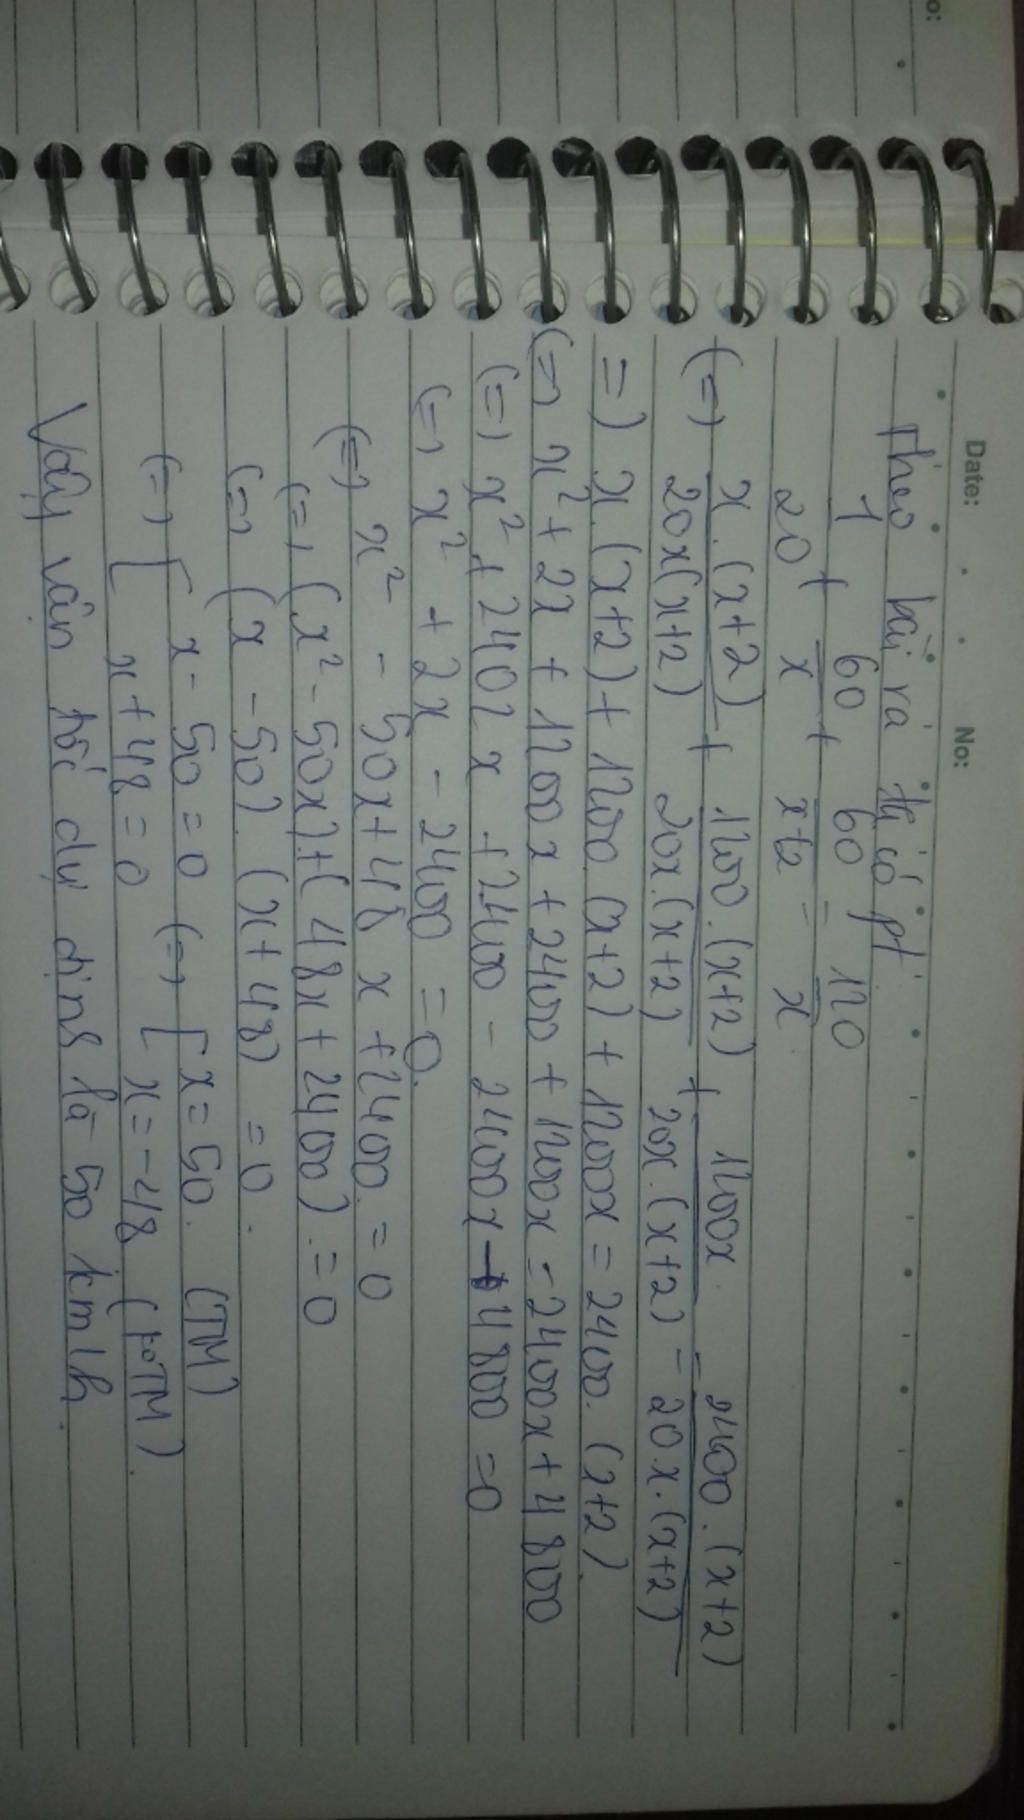 Date: No:
Theo bài ra ta có pt
1/20 + 60/x + 60/x+2 = 120/x
(=) x.(x+2)/20x(x+2) + 1200.(x+2)/20x.(x+2) + 1200x/20x.(x+2) = 2400.(x+2)/20x.(x+2)
=) x.(x+2) + 1200.(x+2) + 1200x = 2400.(x+2)
(=) x² + 2x + 1200x + 2400 + 1200x = 2400x + 4800
(=) x² + 2402x + 2400 - 2400x - 4800 = 0
(=) x² + 2x - 2400 = 0.
(=) x² - 50x + 48x + 2400 = 0
(=) (x² - 50x) + (48x + 2400) = 0
(=) (x - 50).(x + 48) = 0.
(=) [ x - 50 = 0 (=) [ x = 50. (TM)
x + 48 = 0 x = -48 (koTM).
Vậy vân tốc dự định là 50 km/h.